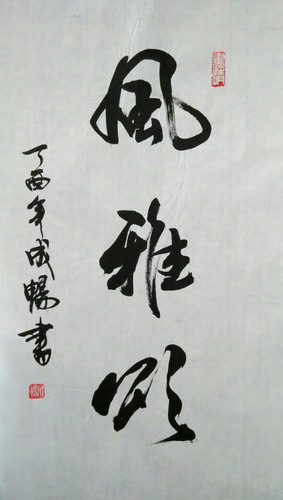 風雅頌
丁酉年成暢書